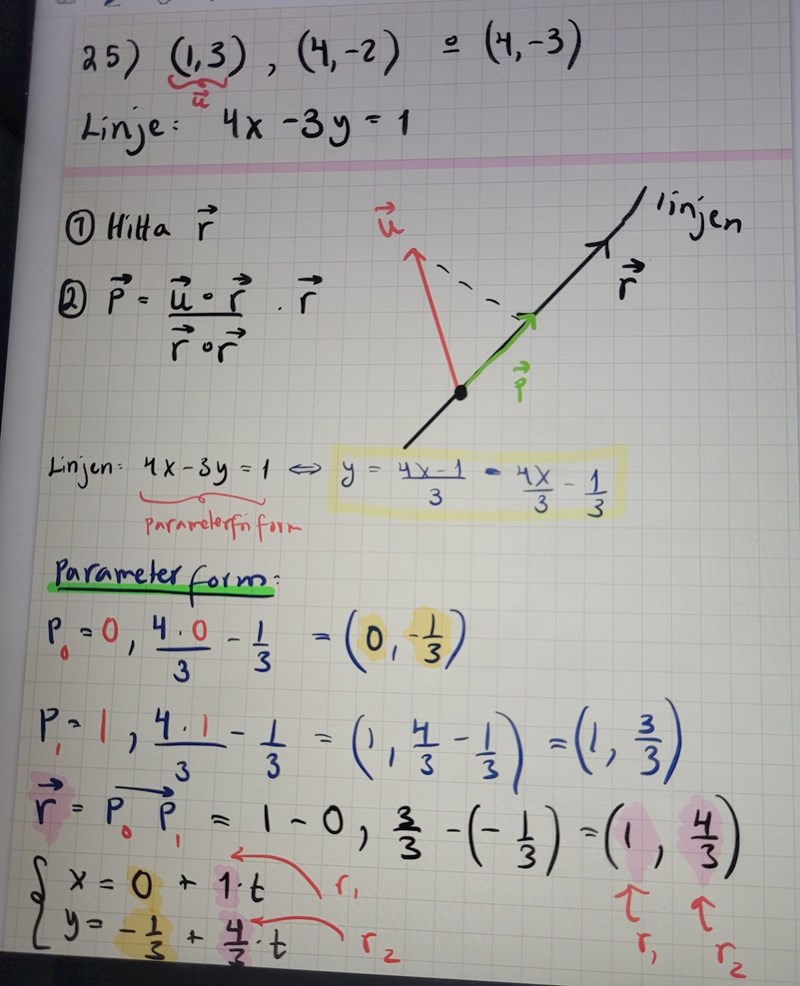 25) (1,3) , (4,-2) o (4,-3)
u⃗
Linje: 4x - 3y = 1
① Hitta r⃗
② P⃗ = (u⃗ ∘ r⃗)/(r⃗ ∘ r⃗) · r⃗
u⃗
linjen
r⃗
P⃗
Linjen: 4x - 3y = 1 ⇔ y = (4x-1)/3 = 4x/3 - 1/3
parameterfri form
Parameter form:
P₀ = 0, (4·0)/3 - 1/3 = (0, -1/3)
P₁ = 1, (4·1)/3 - 1/3 = (1, 4/3 - 1/3) = (1, 3/3)
r⃗ = P₀P₁⃗ = 1 - 0, 3/3 - (-1/3) = (1, 4/3)
{ x = 0 + 1·t r₁
y = -1/3 + 4/3·t r₂
r₁ r₂